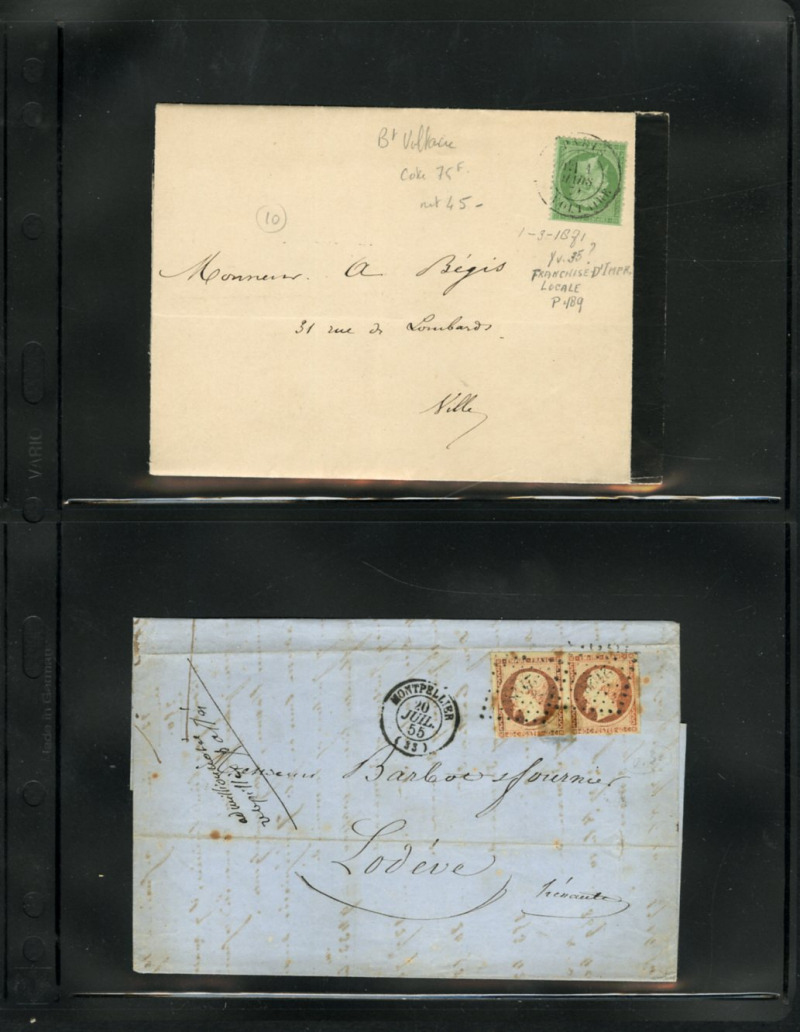 Bt Voltaire
Cote 75F.
net 45 -
10
MARS
1-3-1871
Yv. 35?
FRANCHISE D'IMPR.
LOCALE
P. 189
Monsieur. A Bégis
31 rue des Lombards.
Ville
VARIO
Made in Germany
MONTPELLIER
20
JUIL.
55
(33)
Barbot & fournier
Lodève
hérault